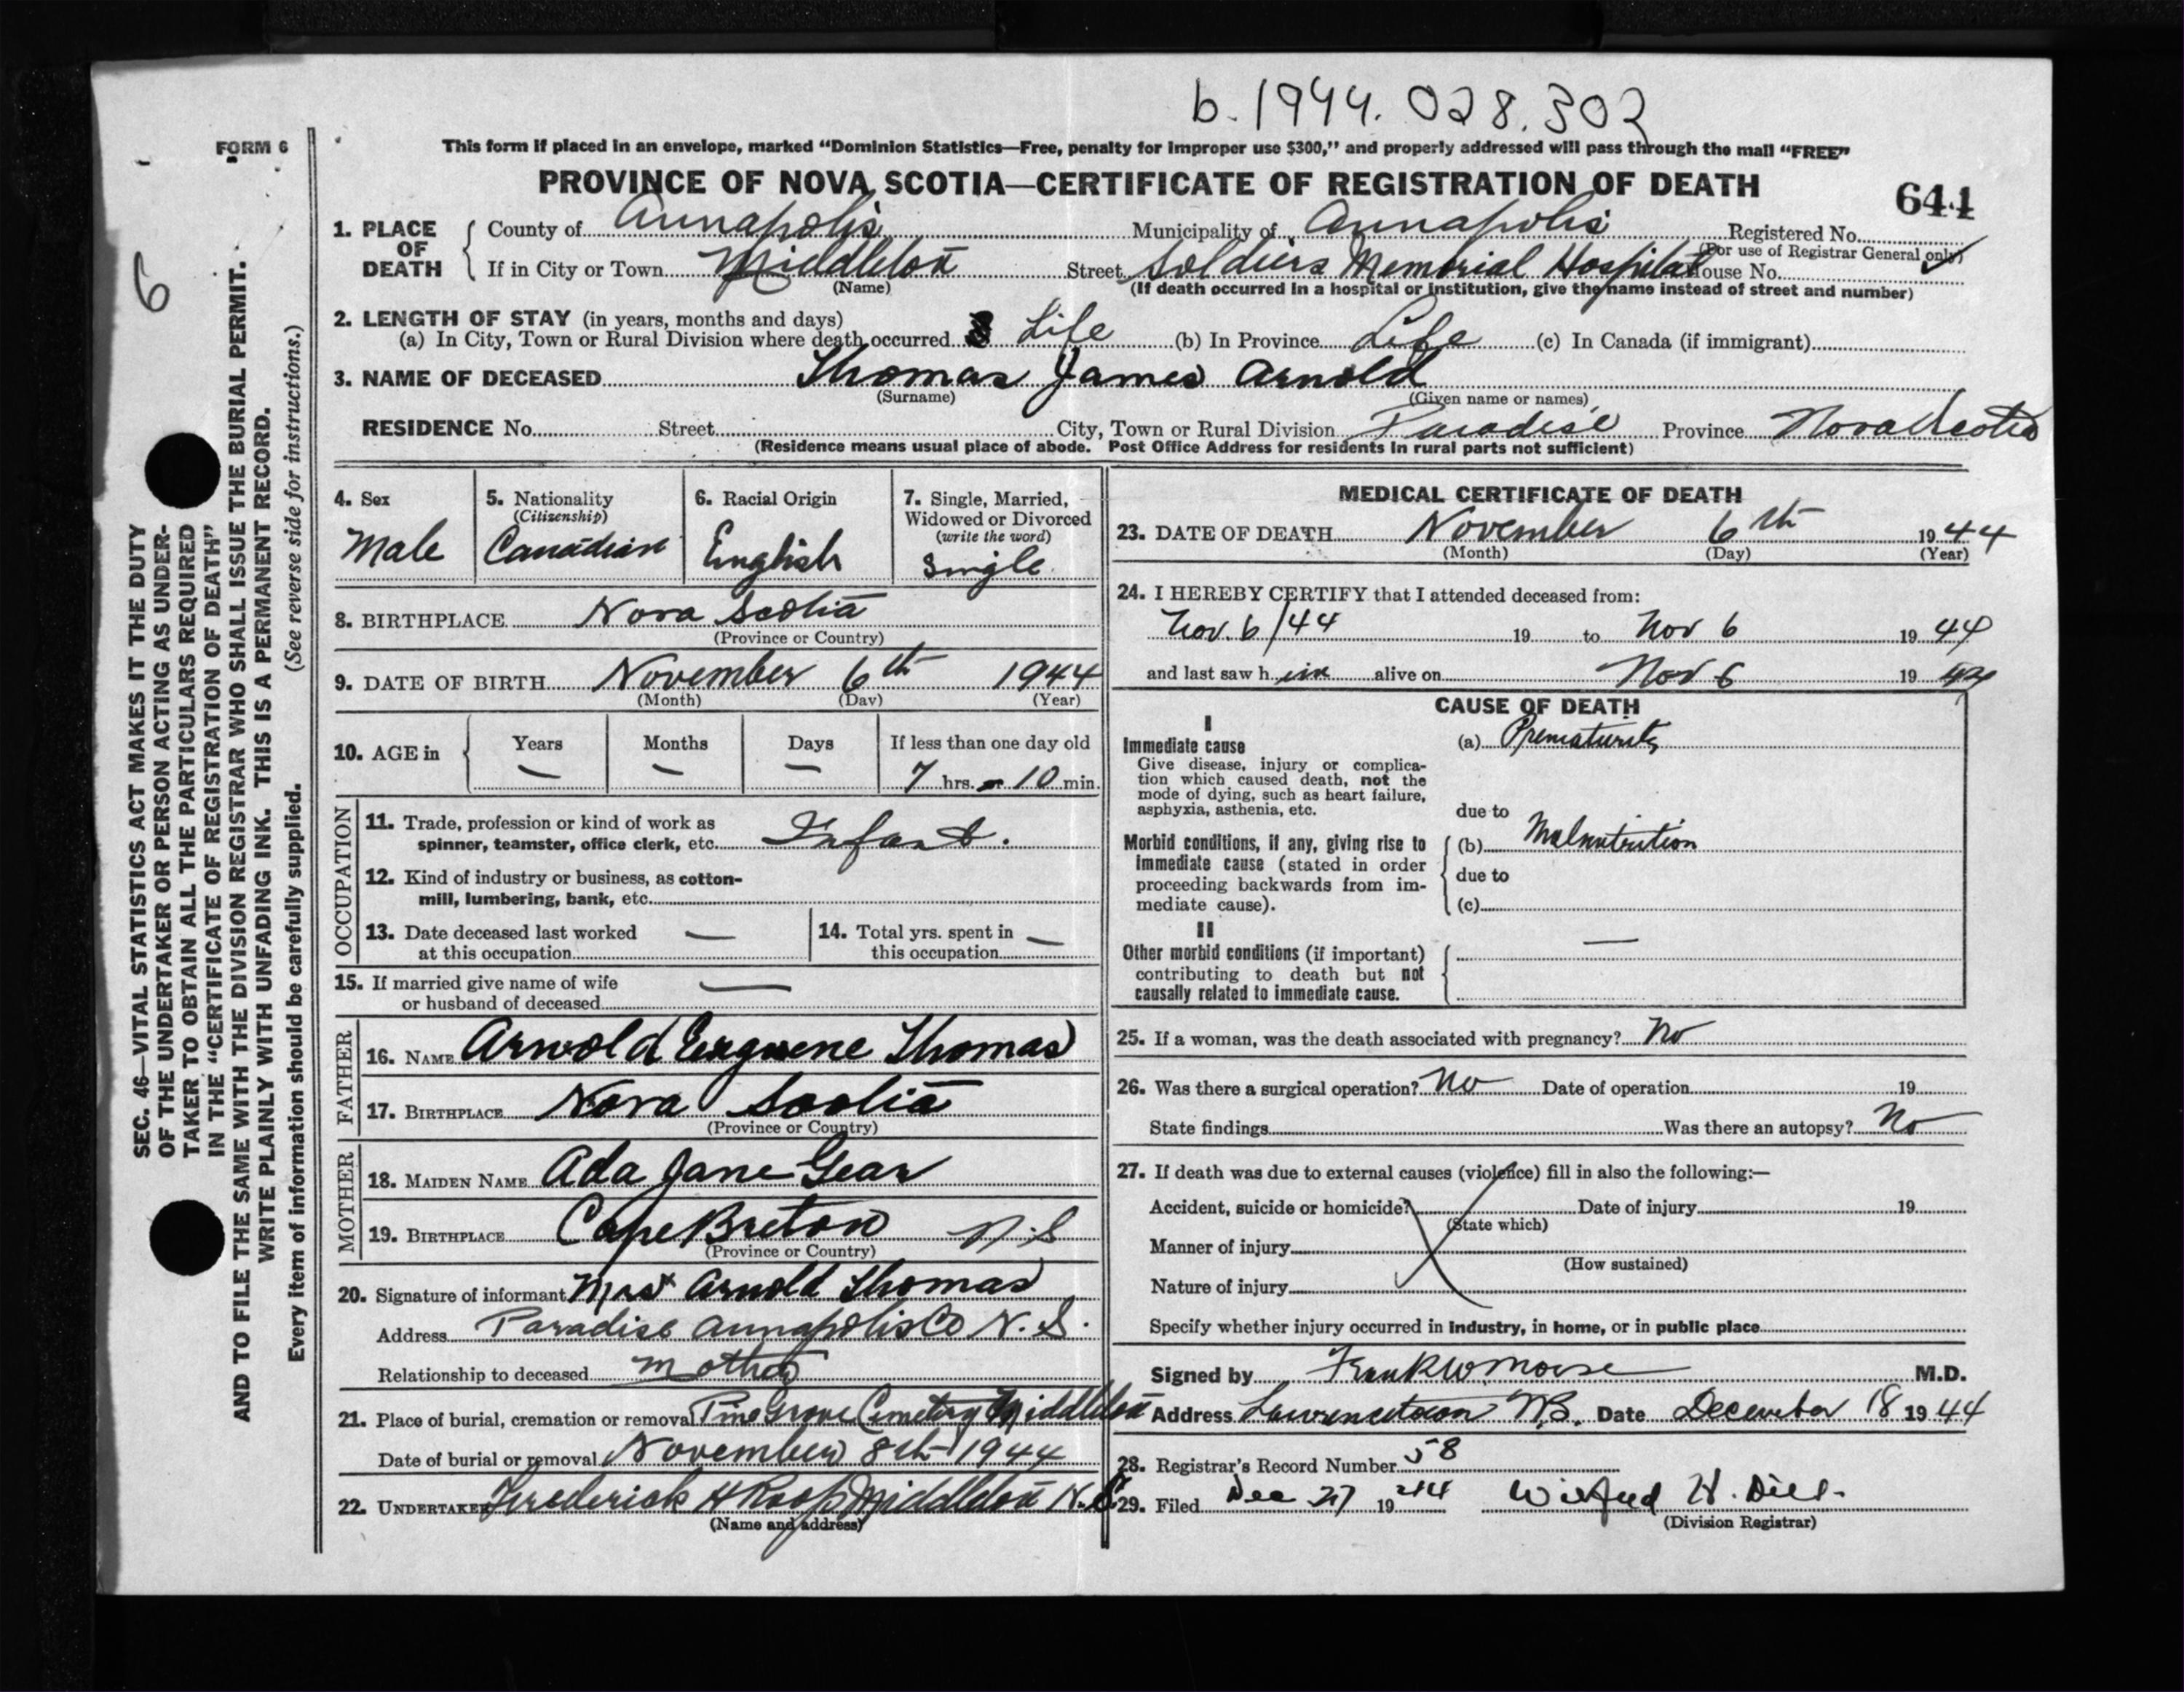 b. 1944. 028.302
FORM 6
This form if placed in an envelope, marked “Dominion Statistics—Free, penalty for improper use $300,” and properly addressed will pass through the mail “FREE”
PROVINCE OF NOVA SCOTIA—CERTIFICATE OF REGISTRATION OF DEATH
644
1. PLACE OF DEATH
County of Annapolis Municipality of Annapolis Registered No.
(For use of Registrar General only)
If in City or Town Middleton Street Soldiers Memorial Hospital House No.
(Name) (If death occurred in a hospital or institution, give the name instead of street and number)
2. LENGTH OF STAY (in years, months and days)
(a) In City, Town or Rural Division where death occurred Life (b) In Province Life (c) In Canada (if immigrant)
3. NAME OF DECEASED Thomas James Arnold
(Surname) (Given name or names)
RESIDENCE No. Street City, Town or Rural Division Paradise Province Nova Scotia
(Residence means usual place of abode. Post Office Address for residents in rural parts not sufficient)
4. Sex
Male
5. Nationality
(Citizenship)
Canadian
6. Racial Origin
English
7. Single, Married,
Widowed or Divorced
(write the word)
Single
8. BIRTHPLACE Nova Scotia
(Province or Country)
9. DATE OF BIRTH November 6th 1944
(Month) (Day) (Year)
10. AGE in
Years Months Days If less than one day old
— — — 7 hrs. or 10 min.
OCCUPATION
11. Trade, profession or kind of work as
spinner, teamster, office clerk, etc. Infant.
12. Kind of industry or business, as cotton-
mill, lumbering, bank, etc.
13. Date deceased last worked
at this occupation —
14. Total yrs. spent in
this occupation —
15. If married give name of wife
or husband of deceased —
FATHER
16. NAME Arnold Eugwene Thomas
17. BIRTHPLACE Nova Scotia
(Province or Country)
MOTHER
18. MAIDEN NAME Ada Jane Gear
19. BIRTHPLACE Cape Breton N.S
(Province or Country)
20. Signature of informant Mrs Arnold Thomas
Address Paradise Annapolis Co N.S.
Relationship to deceased Mother
21. Place of burial, cremation or removal Pine Grove Cemetery Middleton
Date of burial or removal November 8th 1944
22. UNDERTAKER Frederick H Roop Middleton N.S.
(Name and address)
MEDICAL CERTIFICATE OF DEATH
23. DATE OF DEATH November 6th 1944
(Month) (Day) (Year)
24. I HEREBY CERTIFY that I attended deceased from:
Nov. 6/44 19 to Nov 6 19 44
and last saw him alive on Nov 6 19 44
CAUSE OF DEATH
I
Immediate cause
Give disease, injury or complica-
tion which caused death, not the
mode of dying, such as heart failure,
asphyxia, asthenia, etc.
(a) Prematurity
due to
Morbid conditions, if any, giving rise to
immediate cause (stated in order
proceeding backwards from im-
mediate cause).
(b) Malnutrition
due to
(c)
II
Other morbid conditions (if important)
contributing to death but not
causally related to immediate cause.
—
25. If a woman, was the death associated with pregnancy? No
26. Was there a surgical operation? No Date of operation 19
State findings Was there an autopsy? No
27. If death was due to external causes (violence) fill in also the following:—
Accident, suicide or homicide? Date of injury 19
(State which)
Manner of injury
(How sustained)
Nature of injury
Specify whether injury occurred in industry, in home, or in public place
Signed by Frank W Morse M.D.
Address Lawrencetown N.S. Date December 18 1944
28. Registrar's Record Number 58
29. Filed Dec 27 1944 Wilfred H. Dill.
(Division Registrar)
6
SEC. 46—VITAL STATISTICS ACT MAKES IT THE DUTY
OF THE UNDERTAKER OR PERSON ACTING AS UNDER-
TAKER TO OBTAIN ALL THE PARTICULARS REQUIRED
IN THE “CERTIFICATE OF REGISTRATION OF DEATH”
AND TO FILE THE SAME WITH THE DIVISION REGISTRAR WHO SHALL ISSUE THE BURIAL PERMIT.
WRITE PLAINLY WITH UNFADING INK. THIS IS A PERMANENT RECORD.
Every item of information should be carefully supplied. (See reverse side for instructions.)